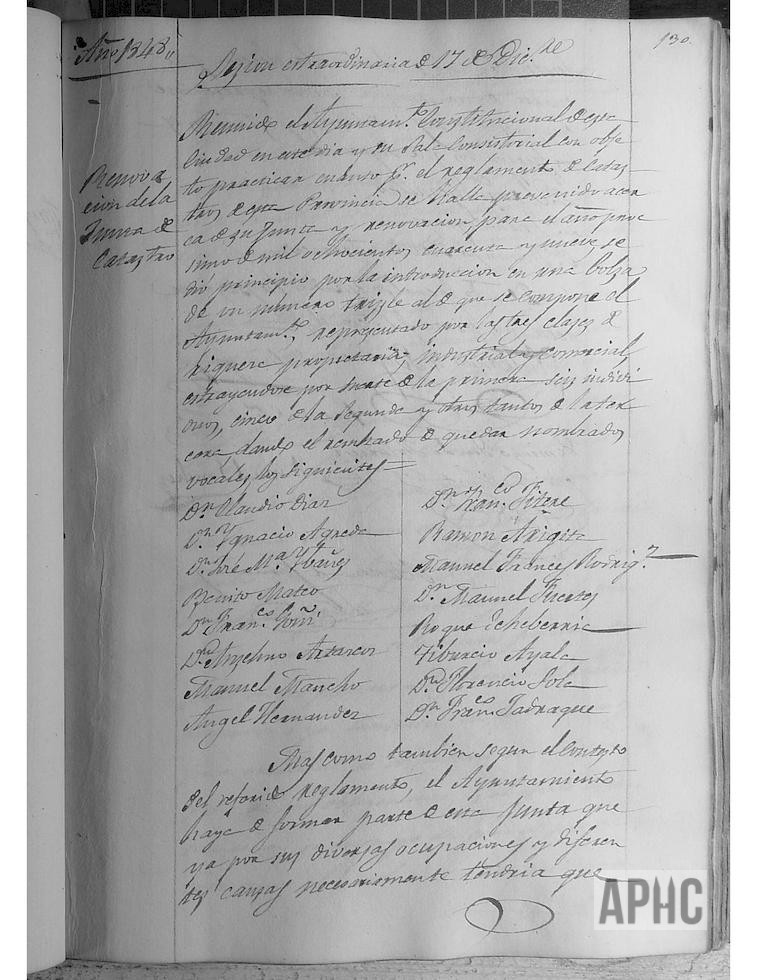 Año 1848,,
130.
Sesion extraordinaria de 17 de Dic.re
Renova
cion de la
Junta de
Catastro
Reunido el Ayuntam.to Constitucional de esta
Ciudad en este dia y su Sala Consistorial con obje
to practicar cuanto p.r el reglamento de Catas-
tros de esta Provincia se halla prevenido acer
ca de su Junta y renovacion para el año proc
simo de mil ochocientos cuarenta y nueve, se
dió principio por la introduccion en una bolsa
de un numero triple al de que se compone el
Ayuntam.to, representado por las tres clases de
riqueza propietaria, industrial y comercial
estrayendose por suerte de la primera seis indivi
duos, cinco de la segunda y otros tantos de la ter
cera dando el resultado de quedar nombrados
vocales los siguientes
Dn Claudio Diaz
Dn Ygnacio Agreda
Dn José M.a Ybañes
Benito Mateo
Dn Fran.co Goñi
Dn Anselmo
Manuel Mancho
Angel Hernandez
Dn Fran.co Fitere
Ramon Arigita
Manuel Frances Rodrig.z
Dn Manuel Fuertes
Roque Echeberria
Tiburcio Ayala
Dn Florencio Sola
Dn Fran.co Jadraque
Mas como tambien segun el Contesto
del referido Reglamento, el Ayuntamiento
haya de formar parte de esta Junta que
ya por sus diversas ocupaciones y diferen
tes causas necesariamente tendria que
APHC